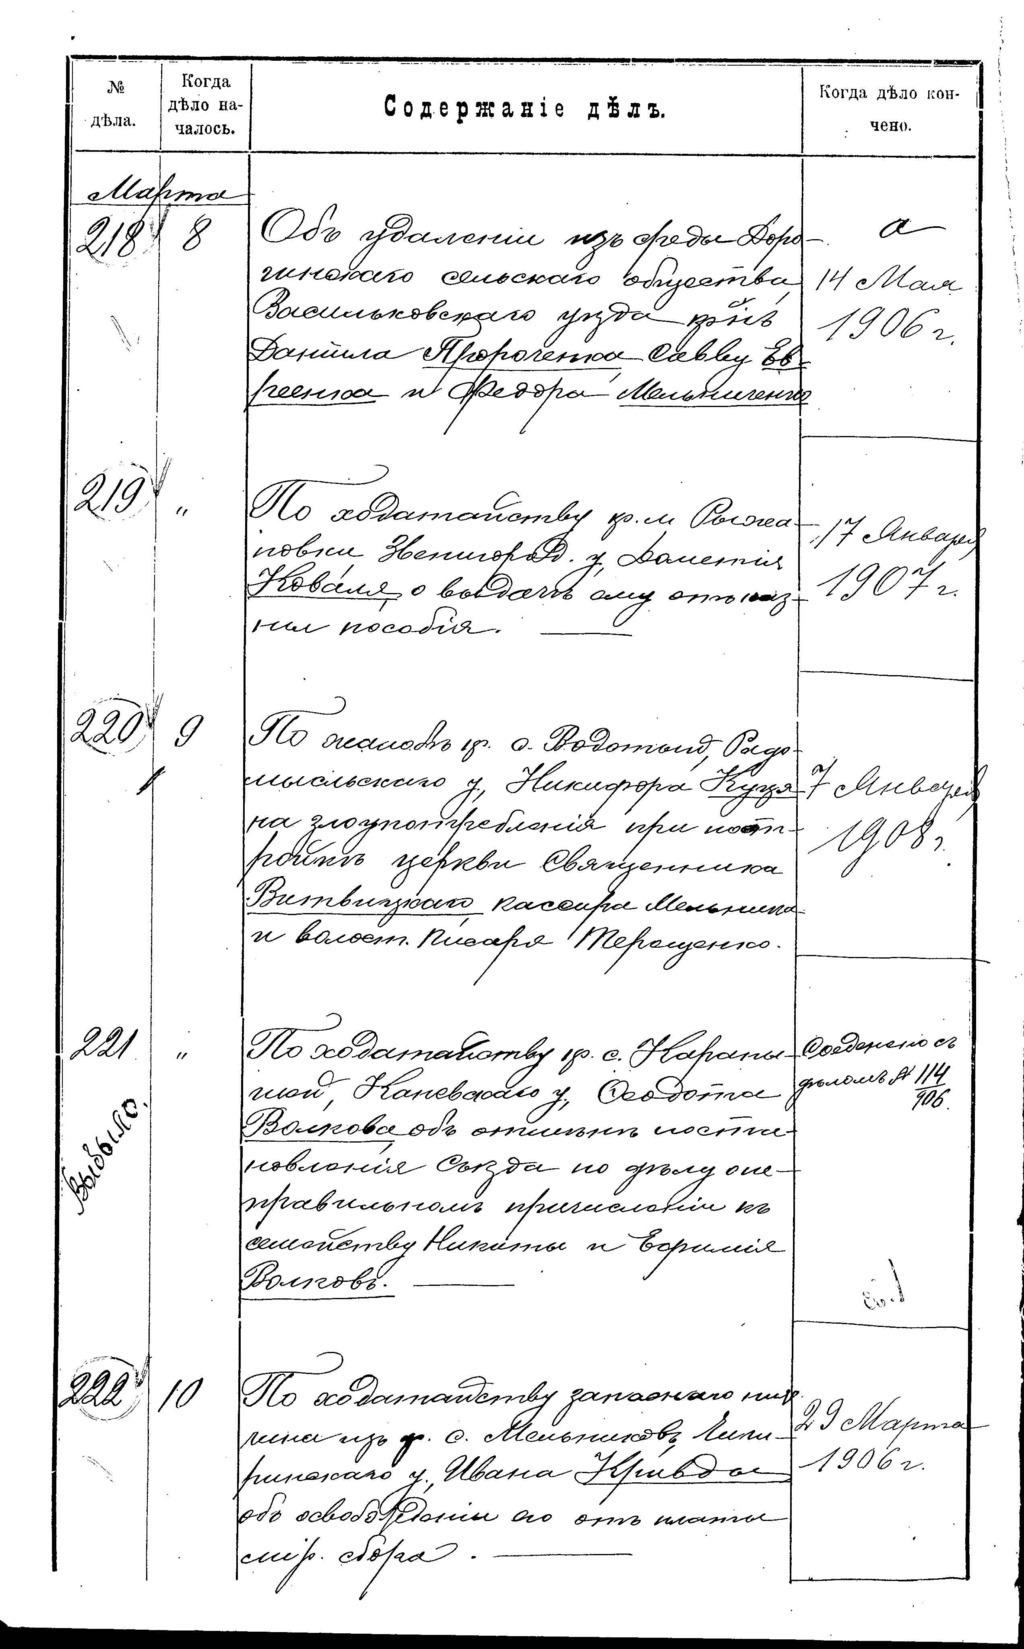 № дѣла.
Когда дѣло на-
чалось.
Содержаніе дѣлъ.
Когда дѣло кон-
чено.
Марта
218 8 Объ удаленіи изъ среды Доро-
гинскаго сельскаго общества,
Васильковскаго уѣзда кр-нъ
Даніила Пророченка Савву Ев-
сеенка и Федора Мельниченко
14 Мая
1906 г.
219 " По ходатайству кр. м. Рыжа-
новки, Звенигород. у, Дометія
Коваля, о выдачѣ ему отъ каз-
ны пособія.
17 Января
1907 г.
220 9 По жалобѣ кр. с. Водотый, Радо-
мысльскаго у, Никифора Куця
на злоупотребленія при пост-
ройкѣ церкви Священника
Витвицкаго, кассира Мельника
и волост. писаря Терещенко.
7 Января
1908 г.
221 " По ходатайству кр. с. Карапы-
шей, Каневскаго у, Феодота
Волкова, объ отмѣнѣ поста-
новленія Съѣзда по дѣлу о не-
правильномъ причисленіи къ
семейству Никиты и Ефимія
Волковъ.
Соединено съ
дѣломъ № 114
906.
Выбыло.
222 10 По ходатайству запаснаго ниж.
чина изъ кр. с. Мельниковъ, Чиги-
ринскаго у, Ивана Кривды
объ освобожденіи его отъ платы
мір. сбора.
29 Марта
1906 г.